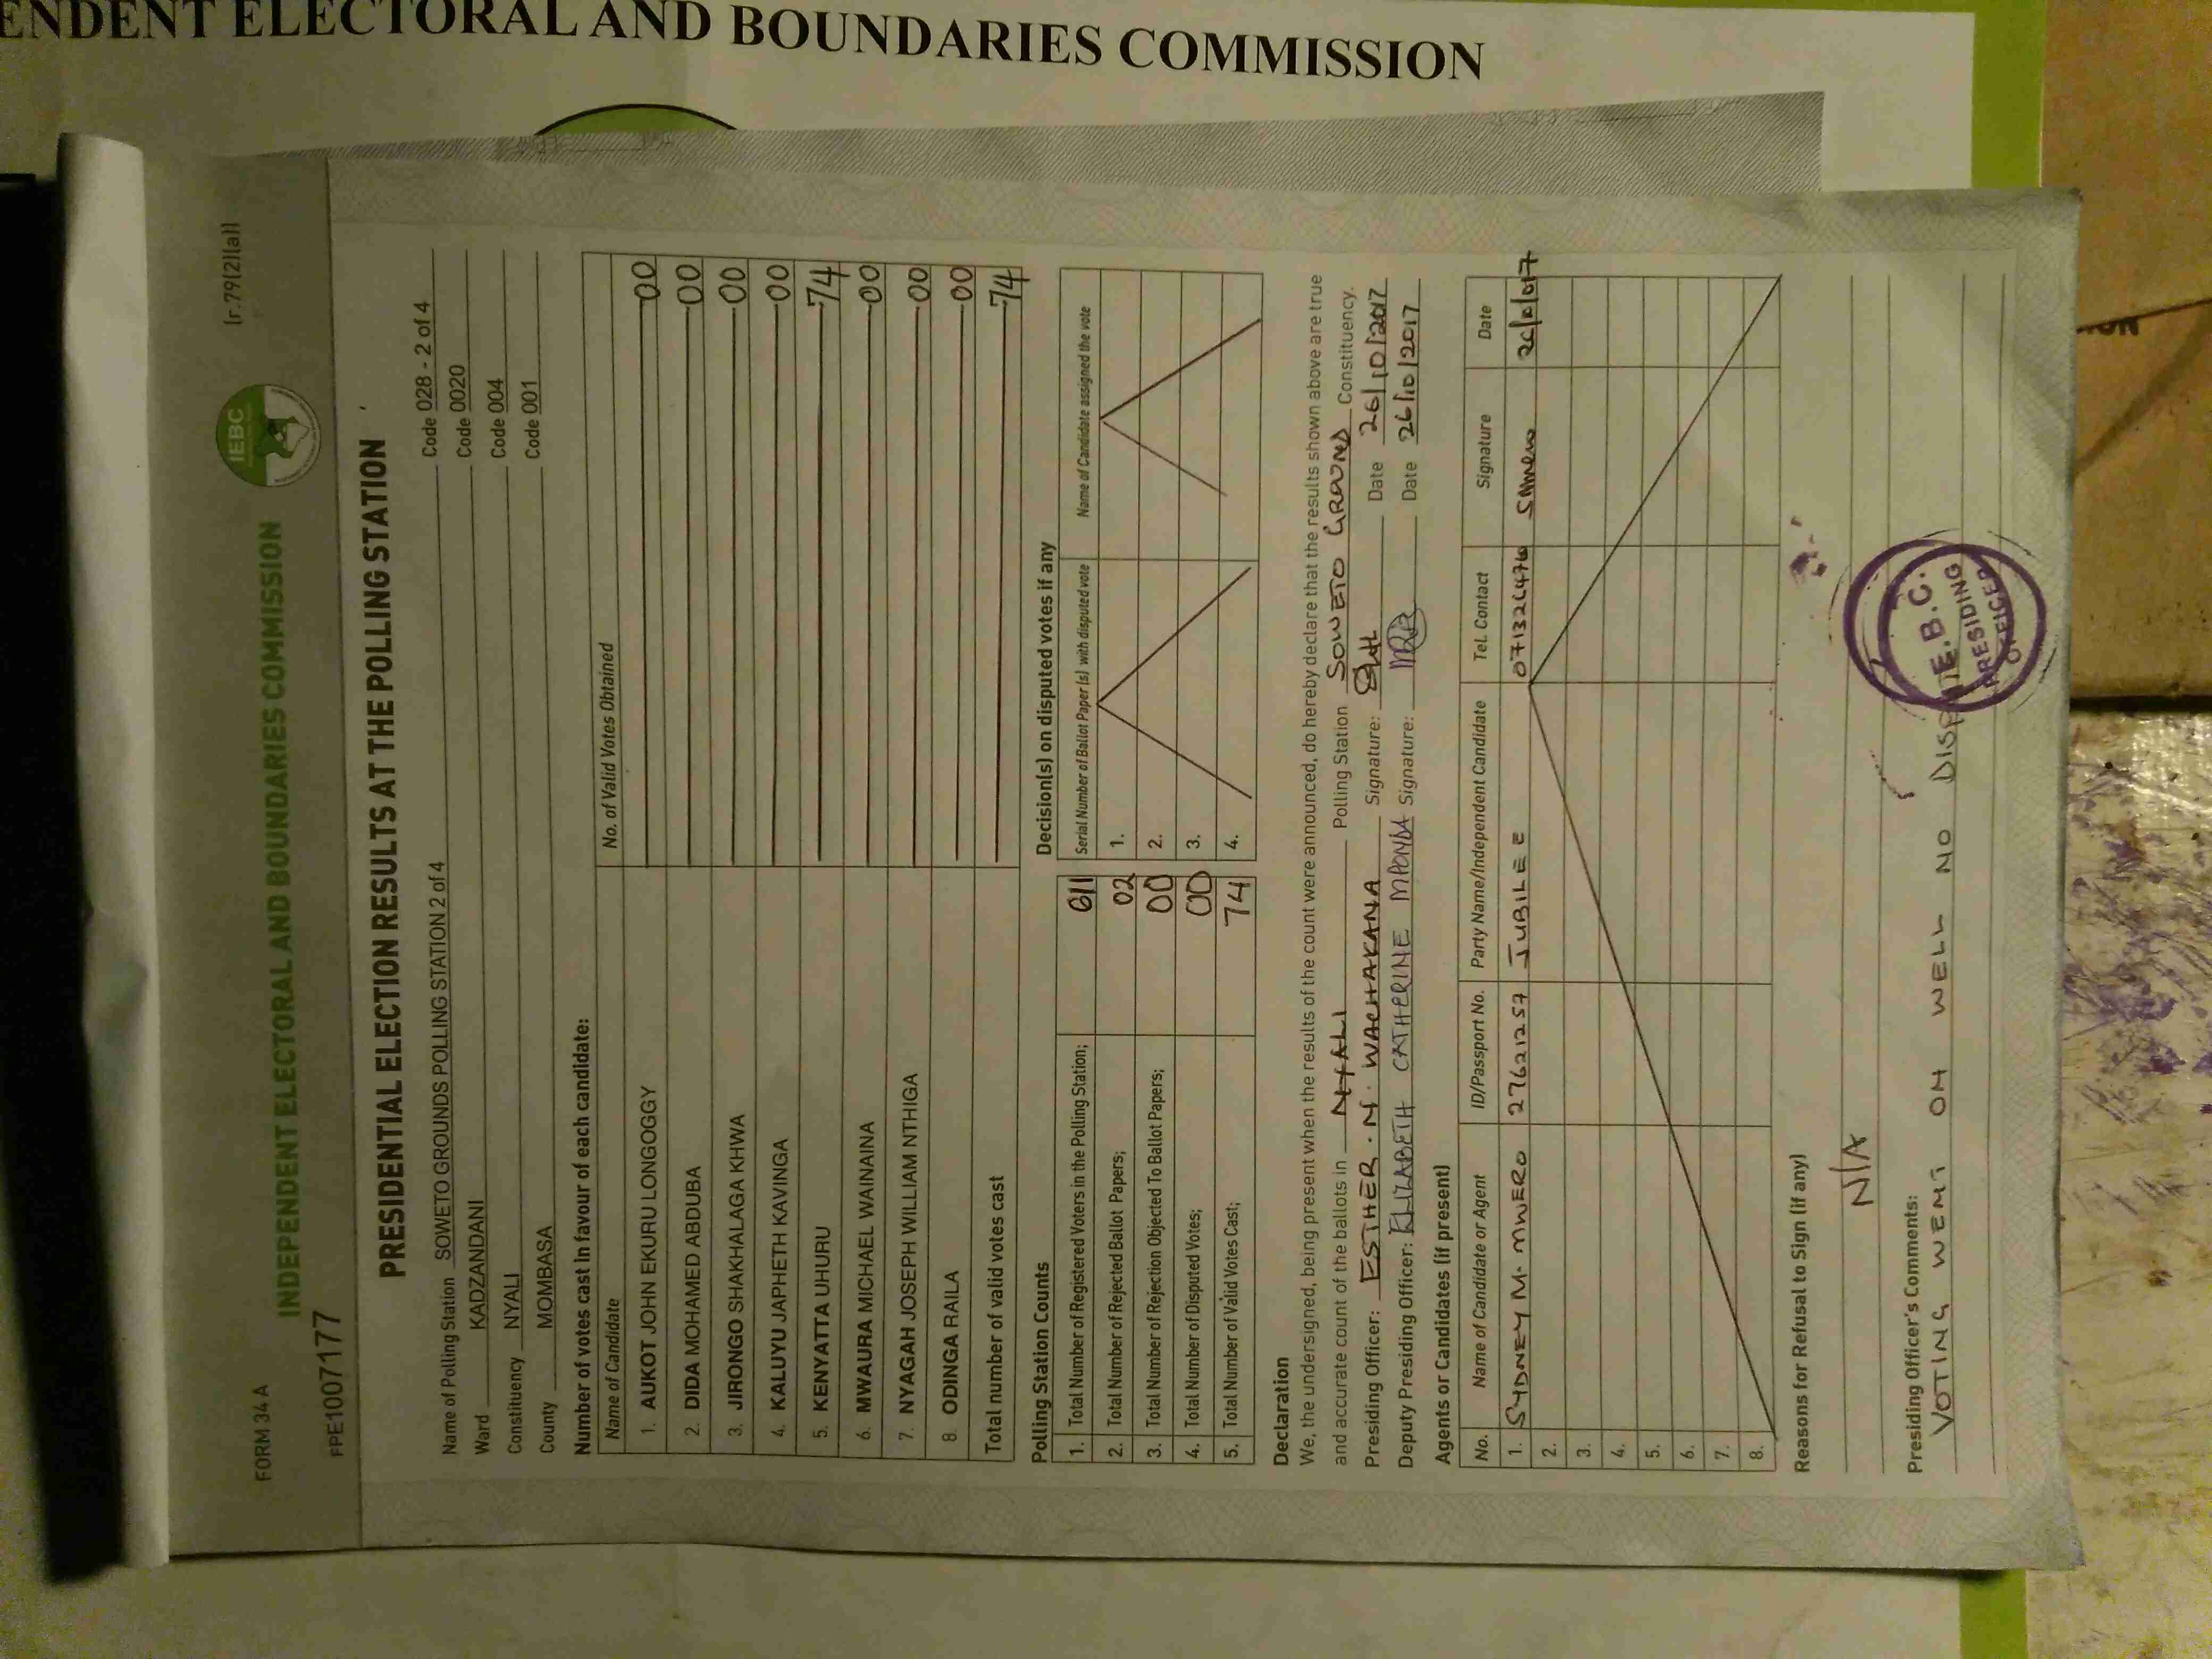 ENDENT ELECTORAL AND BOUNDARIES COMMISSION
FORM 34 A
(r.79(2)(a))
INDEPENDENT ELECTORAL AND BOUNDARIES COMMISSION
IEBC
FPE1007177
PRESIDENTIAL ELECTION RESULTS AT THE POLLING STATION
Name of Polling Station SOWETO GROUNDS POLLING STATION 2 of 4 Code 028 - 2 of 4
Ward KADZANDANI Code 0020
Constituency NYALI Code 004
County MOMBASA Code 001
Number of votes cast in favour of each candidate:
Name of Candidate No. of Valid Votes Obtained
1. AUKOT JOHN EKURU LONGOGGY 00
2. DIDA MOHAMED ABDUBA 00
3. JIRONGO SHAKHALAGA KHWA 00
4. KALUYU JAPHETH KAVINGA 00
5. KENYATTA UHURU 74
6. MWAURA MICHAEL WAINAINA 00
7. NYAGAH JOSEPH WILLIAM NTHIGA 00
8. ODINGA RAILA 00
Total number of valid votes cast 74
Polling Station Counts
1. Total Number of Registered Voters in the Polling Station; 611
2. Total Number of Rejected Ballot Papers; 02
3. Total Number of Rejection Objected To Ballot Papers; 00
4. Total Number of Disputed Votes; 00
5. Total Number of Valid Votes Cast; 74
Decision(s) on disputed votes if any
Serial Number of Ballot Paper (s) with disputed vote Name of Candidate assigned the vote
1.
2.
3.
4.
Declaration
We, the undersigned, being present when the results of the count were announced, do hereby declare that the results shown above are true
and accurate count of the ballots in NYALI Polling Station SOWETO GROUND Constituency.
Presiding Officer: ESTHER . N. WACHAKANA Signature: Date 26/10/2017
Deputy Presiding Officer: ELIZABETH CATHERINE MAPONDA Signature: Date 26/10/2017
Agents or Candidates (if present)
No. Name of Candidate or Agent ID/Passport No. Party Name/Independent Candidate Tel. Contact Signature Date
1. SYDNEY M. MWERO 27621257 JUBILEE Smwero
2.
3.
4.
5.
6.
7.
8.
Reasons for Refusal to Sign (if any)
N/A
Presiding Officer's Comments:
VOTING WENT ON WELL NO
I.E.B.C.
PRESIDING
OFFICER